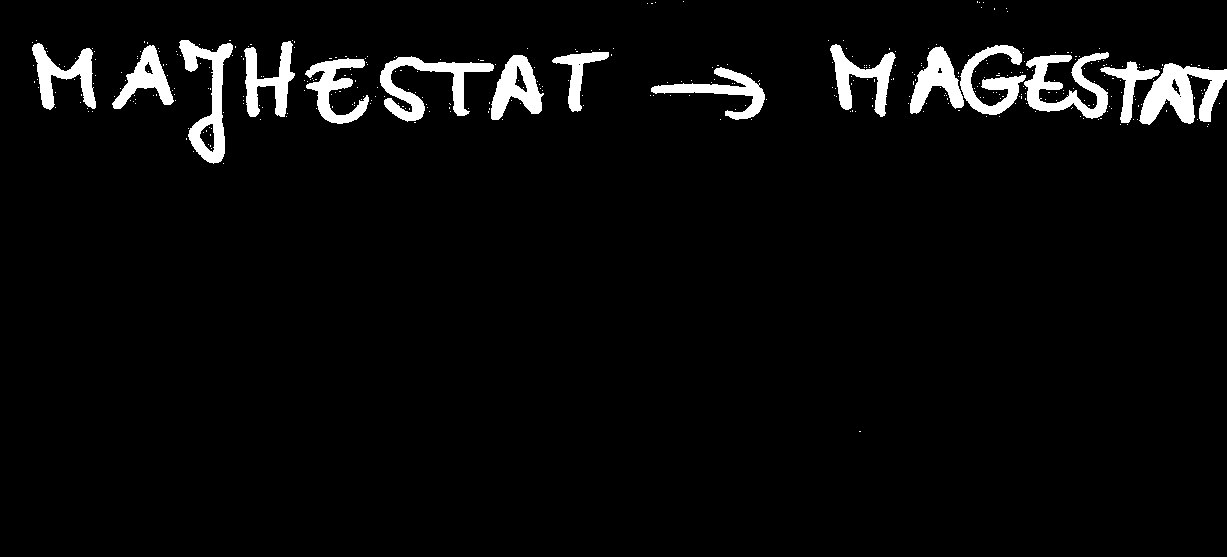 MAJHESTAT → MAGESTAT